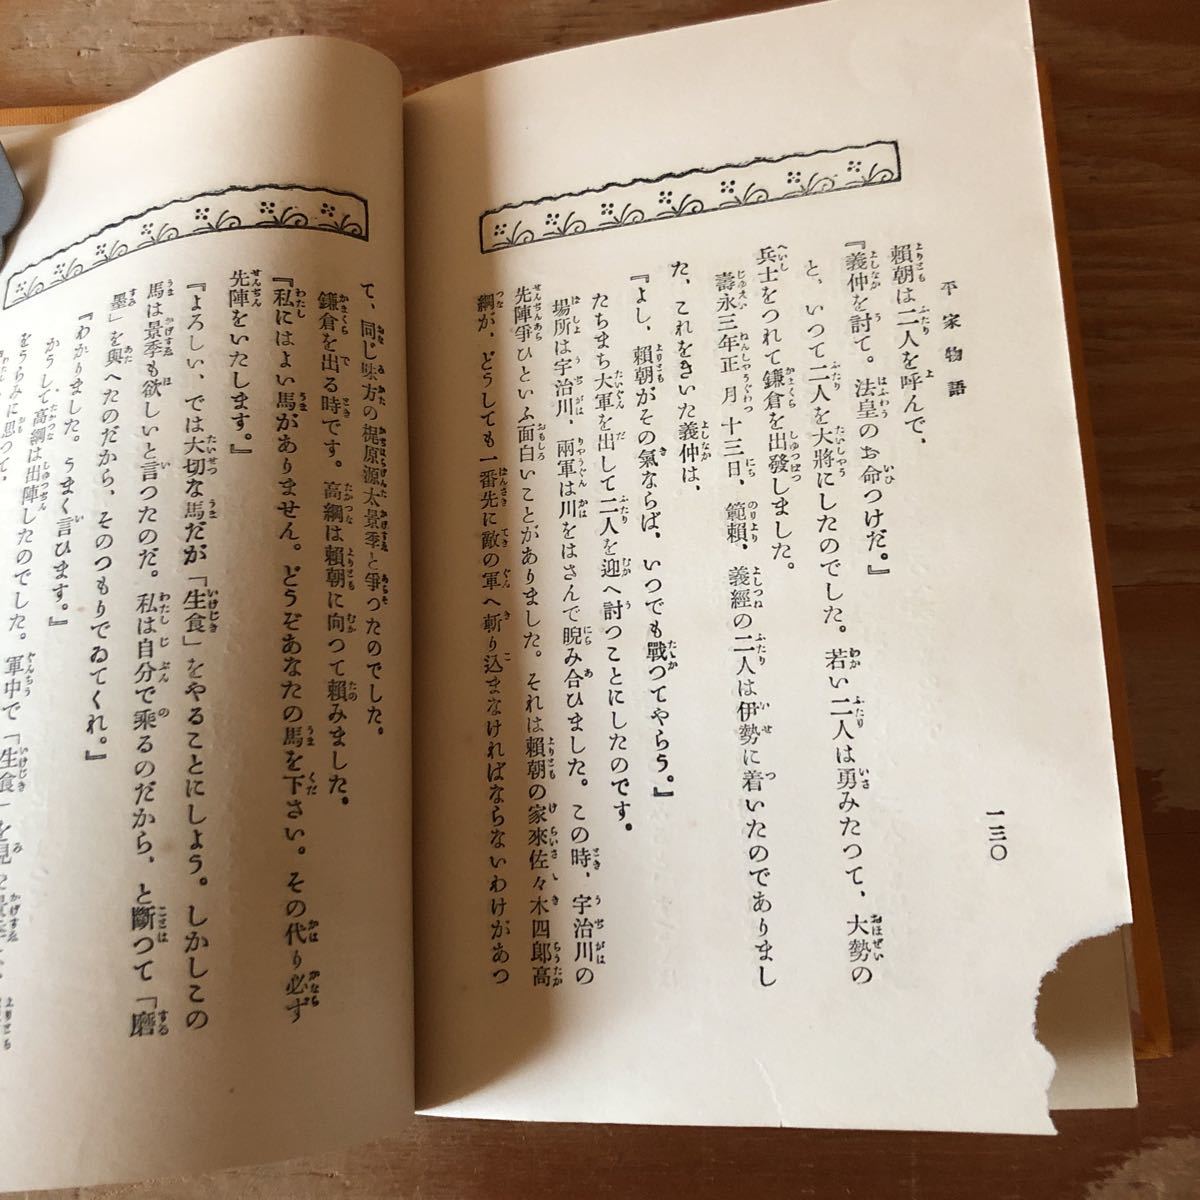 平家物語
一三〇
賴朝は二人を呼んで、
『義仲を討て。法皇のお命つけだ。』
と、いつて二人を大將にしたのでした。若い二人は勇みたつて、大勢の
兵士をつれて鎌倉を出發しました。
壽永三年正月十三日、範賴、義經の二人は伊勢に着いたのでありまし
た、これをきいた義仲は、
『よし、賴朝がその氣ならば、いつでも戰つてやらう。』
たちまち大軍を出して二人を迎へ討つことにしたのです。
場所は宇治川、兩軍は川をはさんで睨み合ひました。この時、宇治川の
先陣爭ひといふ面白いことがありました。それは賴朝の家來佐々木四郎高
綱が、どうしても一番先に敵の軍へ斬り込まなければならないわけがあつ
て、同じ味方の梶原源太景季と爭つたのでした。
鎌倉を出る時です。高綱は賴朝に向つて賴みました。
『私にはよい馬がありません。どうぞあなたの馬を下さい。その代り必ず
先陣をいたします。』
『よろしい、では大切な馬だが「生食」をやることにしよう。しかしこの
馬は景季も欲しいと言つたのだ。私は自分で乘るのだから、と斷つて「磨
墨」を與へたのだから、そのつもりでゐてくれ。』
『わかりました。うまく言ひます。』
かうして高綱は出陣したのでした。軍中で「生食」を見
をうらみに思つて、